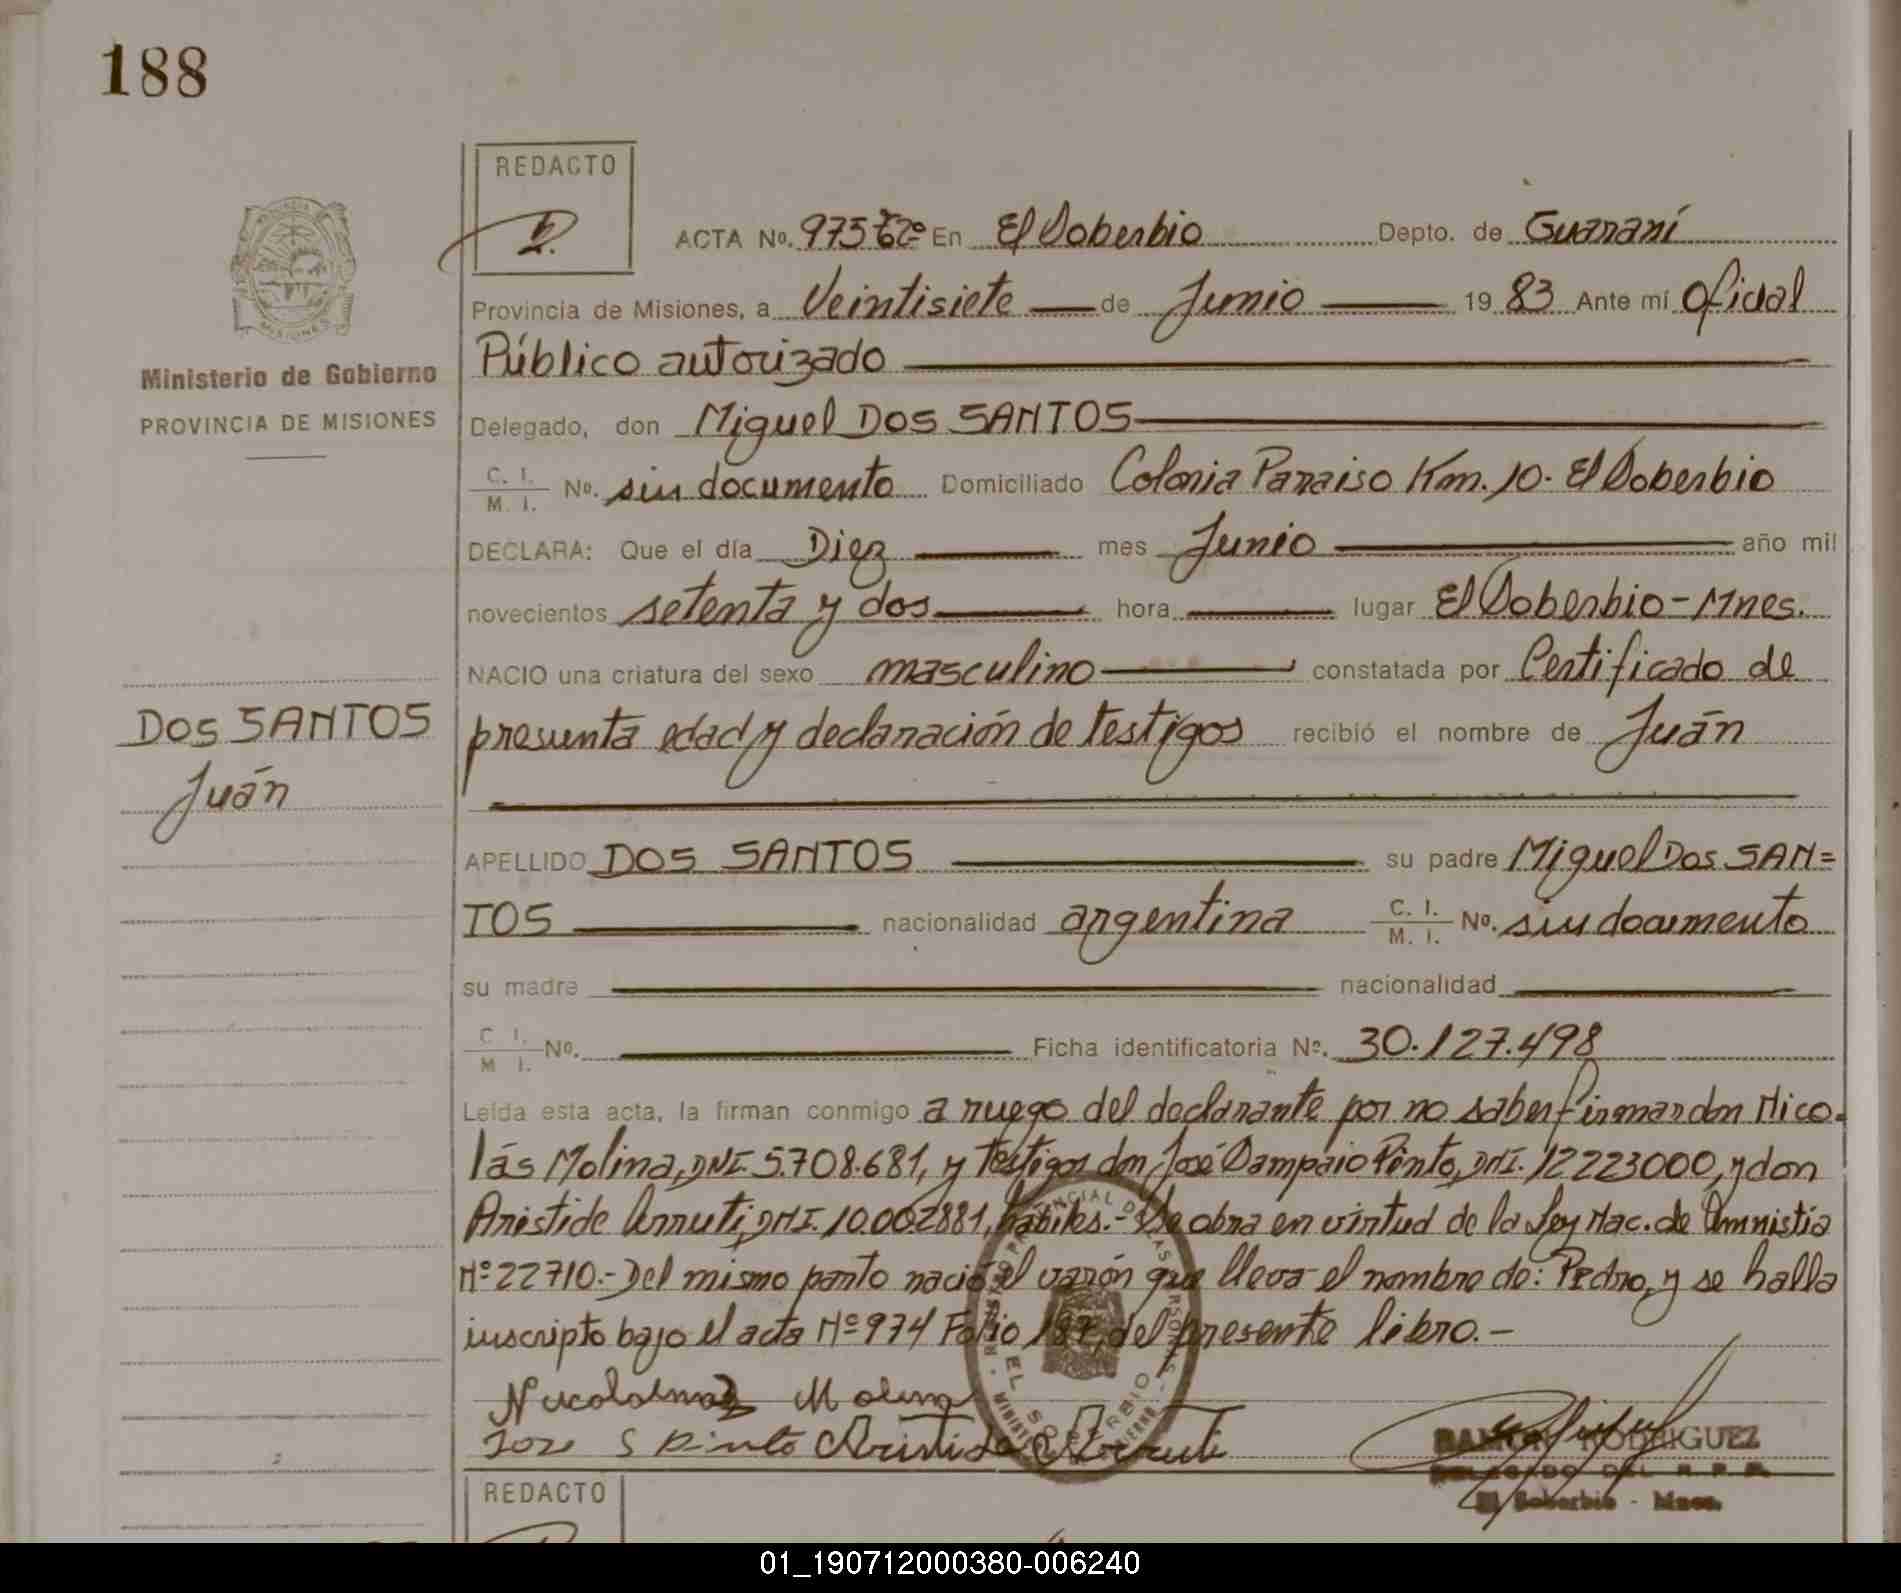 188
REDACTO
ACTA No. 975 Tº2º En El Soberbio Depto. de Guaraní
Provincia de Misiones, a Veintisiete de Junio 1983 Ante mí Oficial
Público autorizado
Ministerio de Gobierno
PROVINCIA DE MISIONES
Delegado, don Miguel DOS SANTOS
C. I. / M. I. No. sin documento Domiciliado Colonia Paraiso Km. 10. El Soberbio
DECLARA: Que el día Diez mes Junio año mil
novecientos setenta y dos hora lugar El Soberbio - Mnes.
NACIO una criatura del sexo masculino constatada por Certificado de
DOS SANTOS
Juán
presunta edad y declaración de testigos recibió el nombre de Juán
APELLIDO DOS SANTOS su padre Miguel Dos SAN=
TOS nacionalidad argentina C. I. / M. I. No. sin documento
su madre nacionalidad
C. I. / M. I. No. Ficha identificatoria No. 30.127.498
Leída esta acta, la firman conmigo a ruego del declarante por no saber firmar don Nico=
lás Molina, DNI. 5.708.681, y testigos don José Sampaio Pinto, DNI. 12223000, y don
Aristide Arruti, DNI. 10.002881, hábiles.- Se obra en virtud de la Ley Nac. de Amnistia
Nº 22710.- Del mismo parto nació el varón que lleva el nombre de: Pedro, y se halla
inscripto bajo el acta Nº 974 Folio 187, del presente libro.-
Molina
Jose S Pinto Aristide Arruti
RAMON RODRIGUEZ
DELEGADO DEL R. P. P.
El Soberbio - Mnes.
EL SOBERBIO
REDACTO
01_190712000380-006240